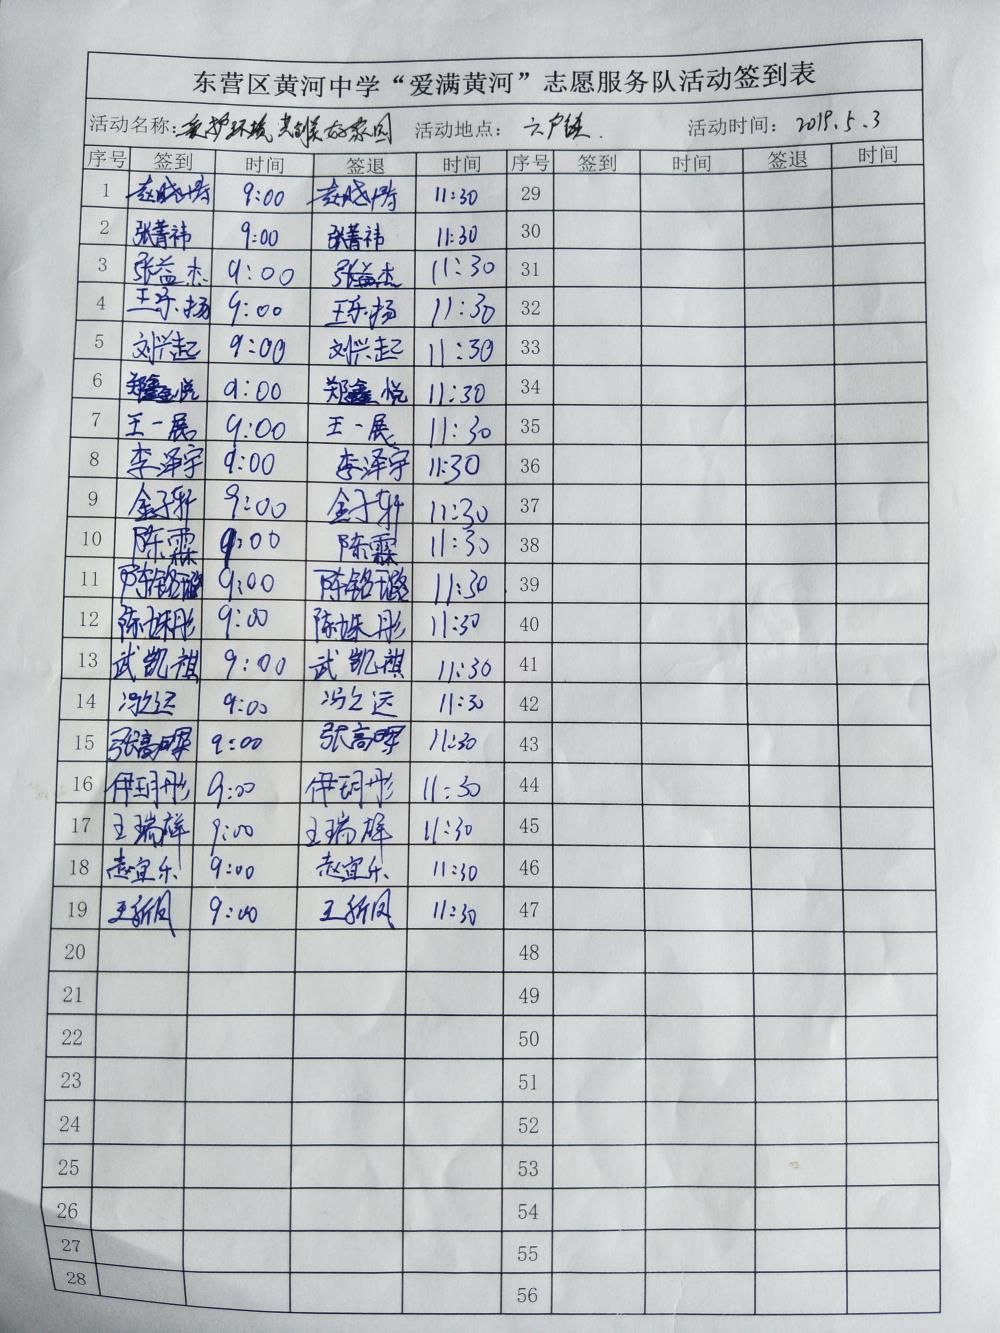 东营区黄河中学“爱满黄河”志愿服务队活动签到表
活动名称: 爱护环境 共创美好家园 活动地点: 六户镇 活动时间: 2019.5.3
序号 签到 时间 签退 时间 序号 签到 时间 签退 时间
1 赵晓 9:00 赵晓 11:30 29
2 张菁祎 9:00 张菁祎 11:30 30
3 张益杰 9:00 张益杰 11:30 31
4 王乐扬 9:00 王乐扬 11:30 32
5 刘兴起 9:00 刘兴起 11:30 33
6 郑鑫悦 9:00 郑鑫悦 11:30 34
7 王一展 9:00 王一展 11:30 35
8 李泽宇 9:00 李泽宇 11:30 36
9 金子轩 9:00 金子轩 11:30 37
10 陈霖 9:00 陈霖 11:30 38
11 陈铭璐 9:00 陈铭璐 11:30 39
12 陈姝彤 9:00 陈姝彤 11:30 40
13 武凯祺 9:00 武凯祺 11:30 41
14 冯之远 9:00 冯之远 11:30 42
15 张高晖 9:00 张高晖 11:30 43
16 伊玥彤 9:00 伊玥彤 11:30 44
17 王瑞祥 9:00 王瑞祥 11:30 45
18 赵宜乐 9:00 赵宜乐 11:30 46
19 王新凤 9:00 王新凤 11:30 47
20 48
21 49
22 50
23 51
24 52
25 53
26 54
27 55
28 56